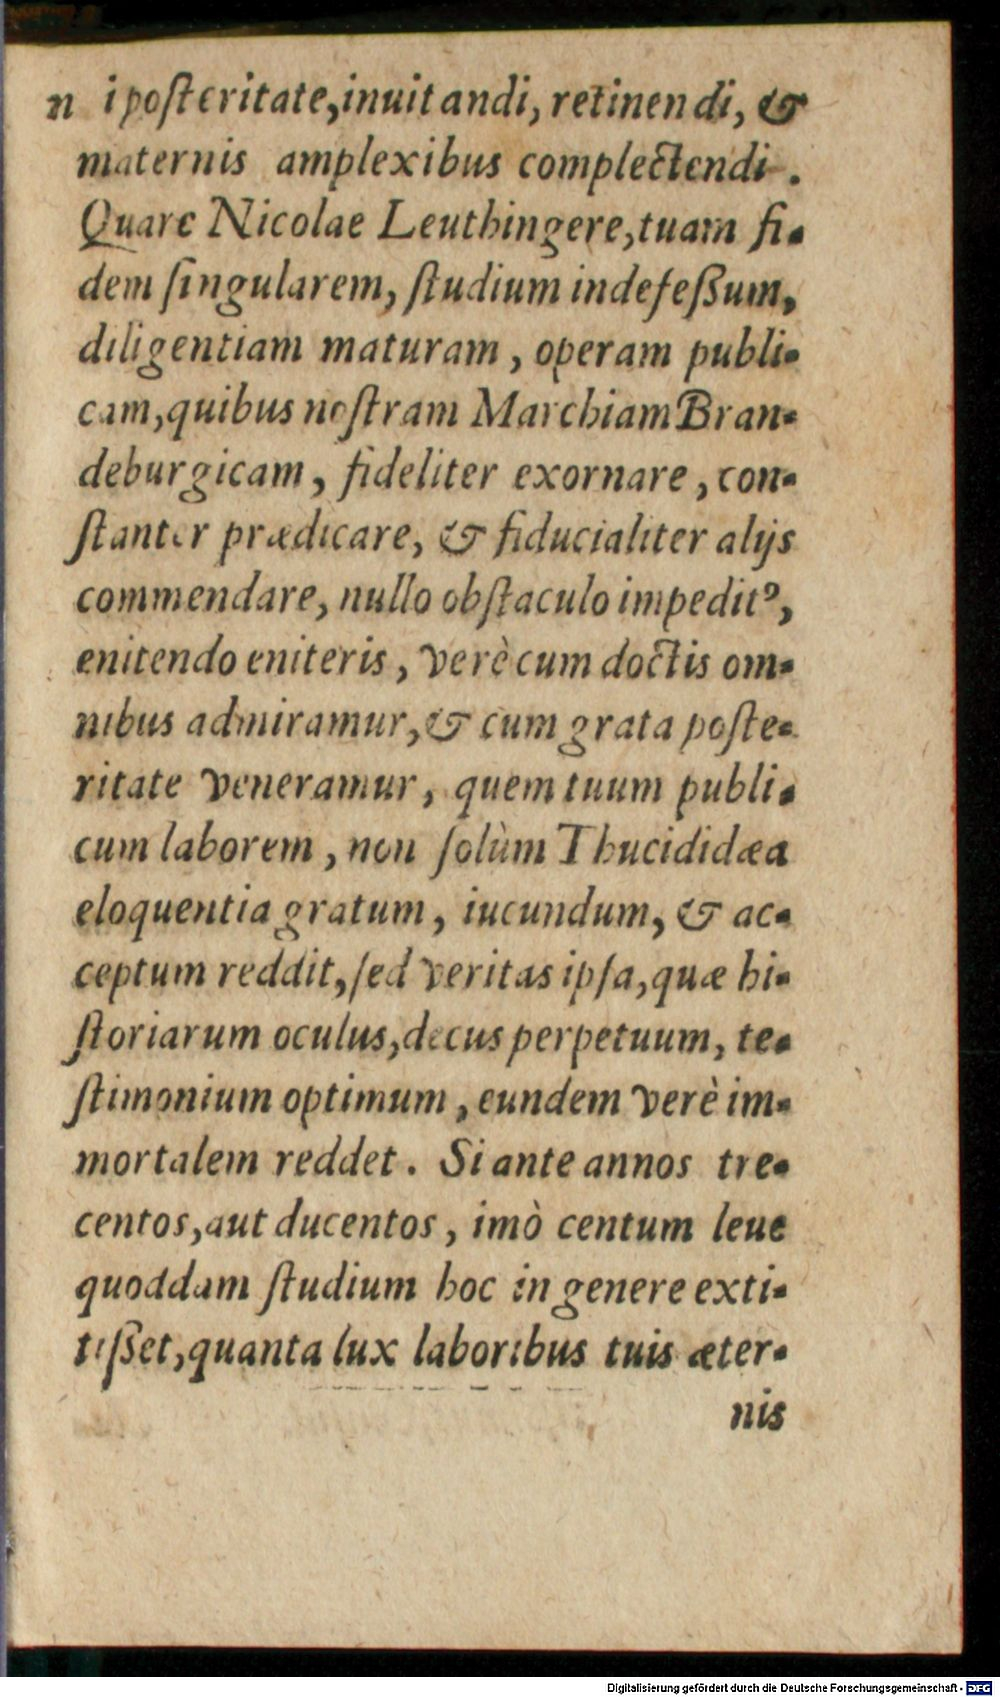 n i posteritate, inuitandi, retinendi, &
maternis amplexibus complectendi.
Quare Nicolae Leuthingere, tuam fi-
dem singularem, studium indefeßum,
diligentiam maturam, operam publi-
cam, quibus nostram Marchiam Bran-
deburgicam, fideliter exornare, con-
stanter prædicare, & fiducialiter alijs
commendare, nullo obstaculo impeditꝰ,
enitendo eniteris, verè cum doctis om-
nibus admiramur, & cum grata poste-
ritate veneramur, quem tuum publi-
cum laborem, non solùm Thucididæa
eloquentia gratum, iucundum, & ac-
ceptum reddit, sed veritas ipsa, quæ hi-
storiarum oculus, decus perpetuum, te-
stimonium optimum, eundem verè im-
mortalem reddet. Si ante annos tre-
centos, aut ducentos, imò centum leue
quoddam studium hoc in genere exti-
tißet, quanta lux laboribus tuis æter-
nis
Digitalisierung gefördert durch die Deutsche Forschungsgemeinschaft - DFG